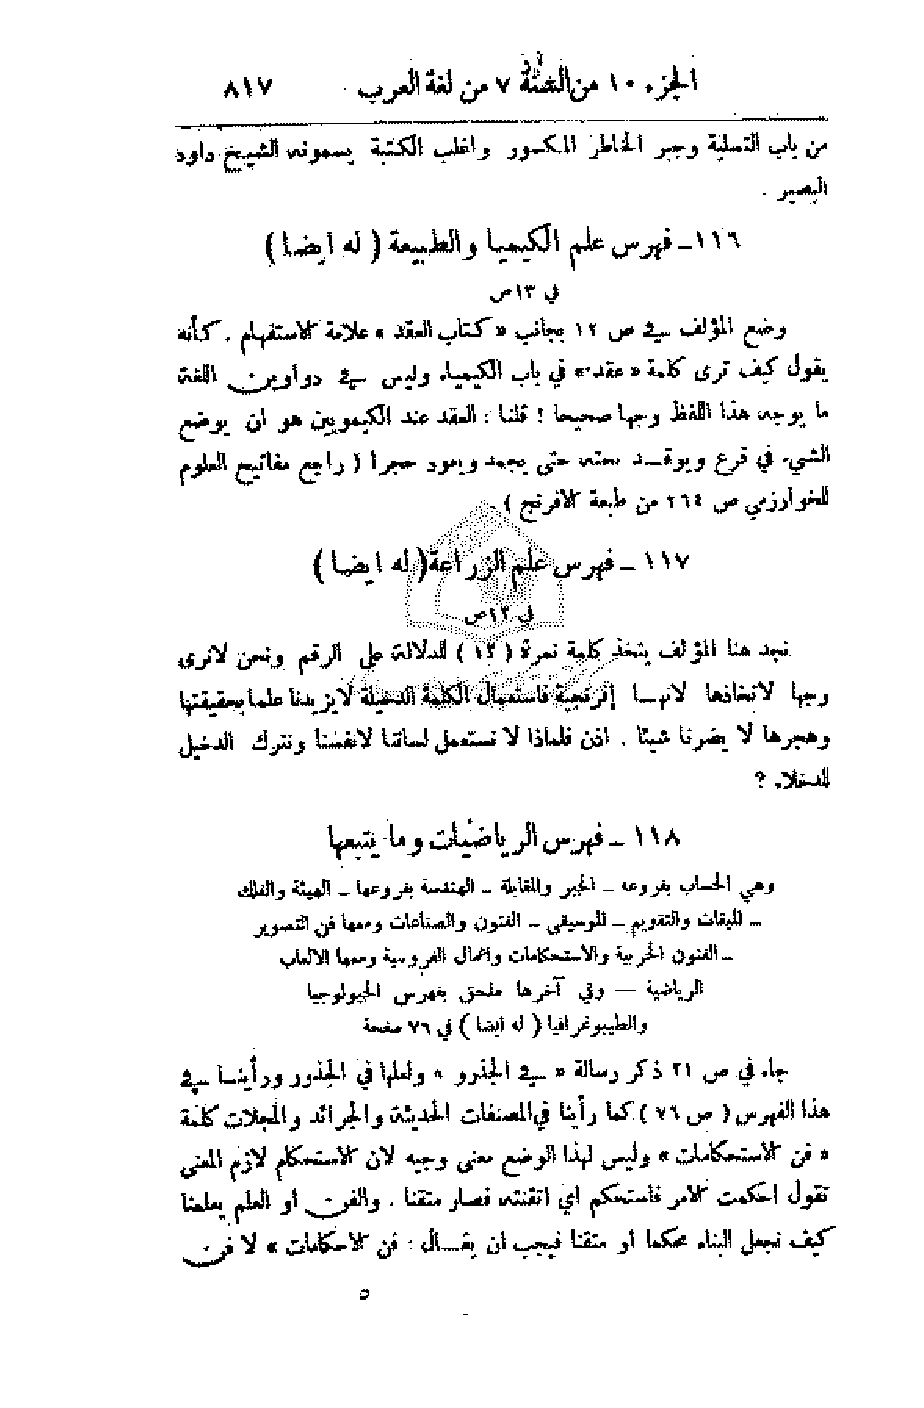 الجزء ١٠ من السنة ٧ من لغة العرب ٨١٧
من باب التسلية وجبر الخاطر المكسور واغلب الكتبة يسمونه الشيخ داود
البصير .
١١٦ ـ فهرس علم الكيميا والطبيعة ( له ايضا )
في ١٣ ص
وضع المؤلف في ص ١٢ بجانب « كتاب العقد » علامة الاستفهام . كأنه
يقول كيف ترى كلمة « عقد » في باب الكيمياء وليس في دواوين اللغة
ما يوجه هذا اللفظ وجها صحيحا ! قلنا : العقد عند الكيمويين هو ان يوضع
الشيء في قرع ويوقد تحته حتى يجمد ويعود حجرا ( راجع مفاتيح العلوم
للخوارزمي ص ٢٦٤ من طبعة الافرنج ) .
١١٧ ـ فهرس علم الزراعة ( له ايضا )
في ١٣ ص
نجد هنا المؤلف يتخذ كلمة نمرة ( ١٣ ) للدلالة على الرقم ونحن لانرى
وجها لاتخاذها لانها إفرنجية فاستعمال الكلمة الدخيلة لايزيدنا علما بحقيقتها
وهجرها لا يضرنا شيئا . اذن فلماذا لا نستعمل لساننا لانفسنا ونترك الدخيل
للدخلاء ؟
١١٨ ـ فهرس الرياضيات وما يتبعها
وهي الحساب بفروعه ـ الجبر والمقابلة ـ الهندسة بفروعها ـ الهيئة والفلك
ـ الميقات والتقويم ـ الموسيقى ـ الفنون والصناعات ومعها فن التصوير
ـ الفنون الحربية والاستحكامات واعمال الفروسية ومعها الالعاب
الرياضية — وفي آخرها ملحق بفهرس الجيولوجيا
والطيبوغرافيا ( له ايضا ) في ٧٦ صفحة
جاء في ص ٢١ ذكر رسالة « في الجذرو » ولعلها في الجذور ورأينا في
هذا الفهرس ( ص ٧٦ ) كما رأينا في المصنفات الحديثة والجرائد والمجلات كلمة
« فن الاستحكامات » وليس لهذا الوضع معنى وجيه لان الاستحكام لازم المعنى
تقول احكمت الامر فاستحكم اي اتقنته فصار متقنا . والفن او العلم يعلمنا
كيف نجعل البناء محكما او متقنا فيجب ان يقال : فن الاحكامات » لا فن
٥